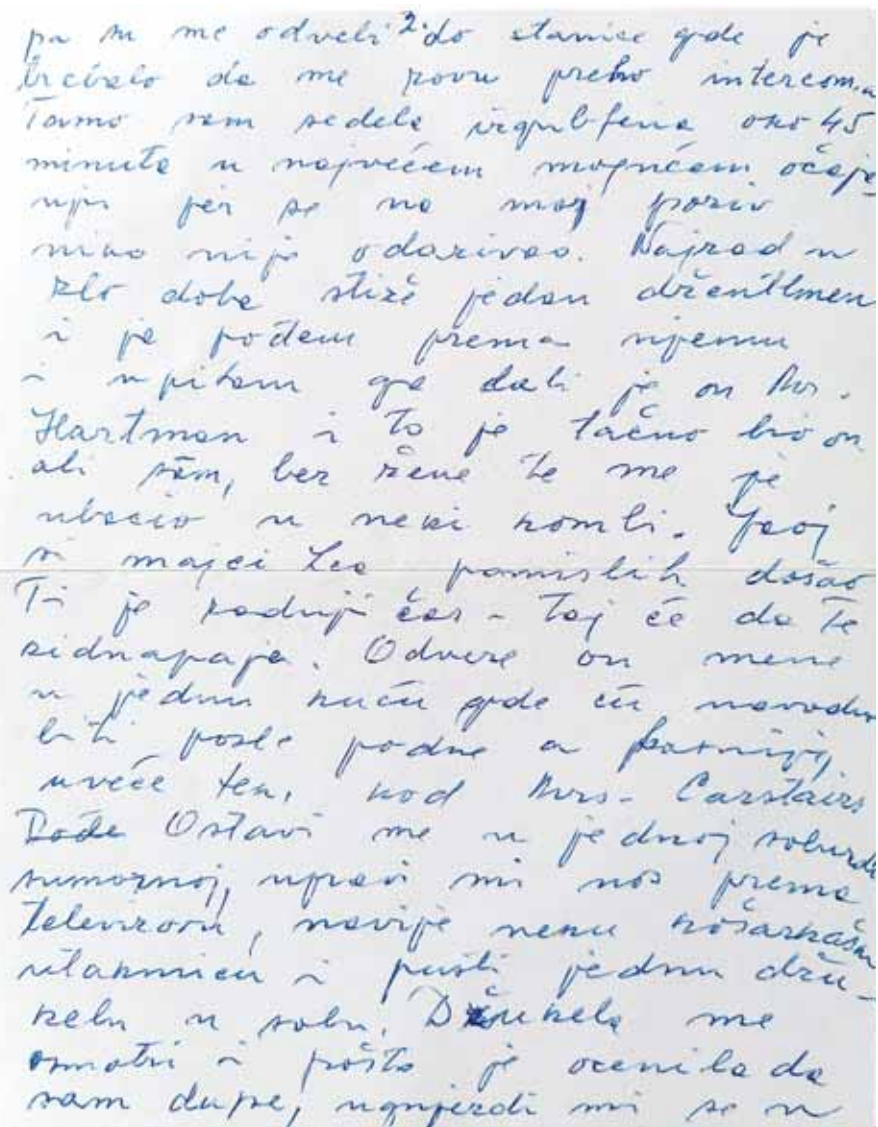 2.
pa su me odveli do stanice gde je
trebalo da me zovu preko intercom-a
Tamo sam sedela izgubljena oko 45
minuta u najvećem mogućem očaja-
nju jer se na moj poziv
niko nije odazivao. Najzad u
zlo doba stiže jedan džentlmen
i ja pođem prema njemu
i upitam ga dali je on Mr.
Hartman i to je tačno bio on
ali sam, bez žene te me je
ubacio u neki kombi. Jaoj
si majci Lea pomislih došao
Ti je zadnji čas - taj će da te
kidnapaja. Odveze on mene
u jednu kuću gde ću navodno
biti posle podne a kasnije
uveče tek, kod Mrs. Carstairs
Dođe Ostavi me u jednoj soburdi
sumornoj, upravi mi nos prema
televizoru, navije neku košarkašku
utakmicu i pusti jednu džu-
kelu u sobu. Džukela me
osmotri i pošto je ocenila da
sam dupe, ugnjezdi mi se u